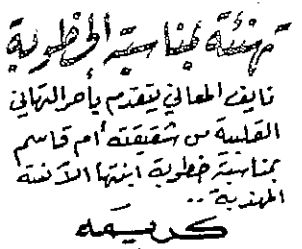 تهنئة بمناسبة الخطوبة
نايف المعاني يتقدم بأحر التهاني
القلبية من شقيقته أم قاسم
بمناسبة خطوبة ابنتها الآنسة
المهذبة ..
كريمه